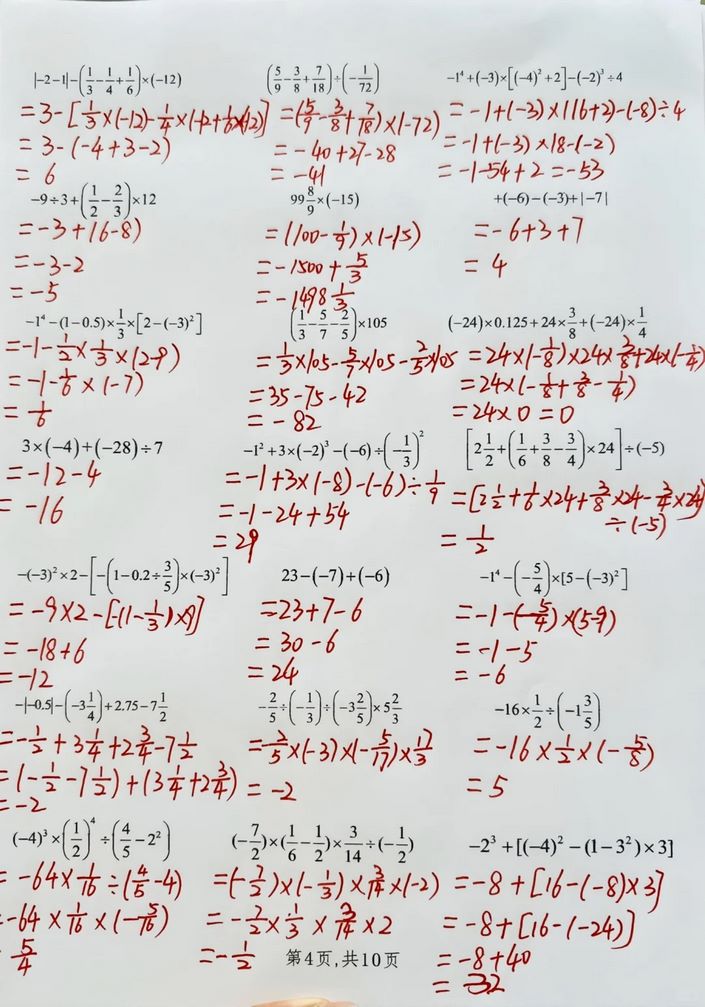 |-2-1|-(1/3-1/4+1/6)×(-12)
=3-[1/3×(-12)-1/4×(-12+1/6×(-12)]
=3-(-4+3-2)
=6
(5/9-3/8+7/18)÷(-1/72)
=(5/9-3/8+7/18)×(-72)
=-40+27-28
=-41
-1⁴+(-3)×[(-4)²+2]-(-2)³÷4
=-1+(-3)×(16+2)-(-8)÷4
=-1+(-3)×18-(-2)
=-1-54+2=-53
-9÷3+(1/2-2/3)×12
=-3+(6-8)
=-3-2
=-5
99 8/9×(-15)
=(100-1/9)×(-15)
=-1500+5/3
=-1498 1/3
+(-6)-(-3)+|-7|
=-6+3+7
=4
-1⁴-(1-0.5)×1/3×[2-(-3)²]
=-1-1/2×1/3×(2-9)
=-1-1/6×(-7)
=1/6
(1/3-5/7-2/5)×105
=1/3×105-5/7×105-2/5×105
=35-75-42
=-82
(-24)×0.125+24×3/8+(-24)×1/4
=24×(-1/8)×24×3/8+24×(-1/4)
=24×(-1/8+3/8-1/4)
=24×0=0
3×(-4)+(-28)÷7
=-12-4
=-16
-1²+3×(-2)³-(-6)÷(-1/3)²
=-1+3×(-8)-(-6)÷1/9
=-1-24+54
=29
[2 1/2+(1/6+3/8-3/4)×24]÷(-5)
=[2 1/2+1/6×24+3/8×24-3/4×24]
÷(-5)
=1/2
-(-3)²×2-[-(1-0.2÷3/5)×(-3)²]
=-9×2-[-(1-1/3)×9]
=-18+6
=-12
23-(-7)+(-6)
=23+7-6
=30-6
=24
-1⁴-(-5/4)×[5-(-3)²]
=-1-(-5/4)×(5-9)
=-1-5
=-6
-|-0.5|-(-3 1/4)+2.75-7 1/2
=-1/2+3 1/4+2 3/4-7 1/2
=(-1/2-7 1/2)+(3 1/4+2 3/4)
=-2
-2/5÷(-1/3)÷(-3 2/5)×5 2/3
=-2/5×(-3)×(-5/17)×17/3
=-2
-16×1/2÷(-1 3/5)
=-16×1/2×(-5/8)
=5
(-4)³×(1/2)⁴÷(4/5-2²)
=-64×1/16÷(4/5-4)
=-64×1/16×(-5/16)
5/4
(-7/2)×(1/6-1/2)×3/14÷(-1/2)
=(-7/2)×(-1/3)×3/14×(-2)
=-7/2×1/3×3/14×2
=-1/2
-2³+[(-4)²-(1-3²)×3]
=-8+[16-(-8)×3]
=-8+[16-(-24)]
=-8+40
=32
第4页,共10页